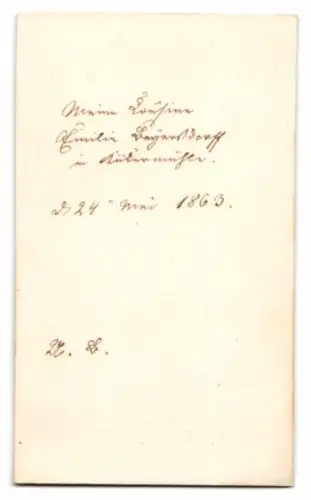 Meine Cousine
Emilie Beyersdorff
in Kükenmühle.
d 24" Mai 1863.
A. B.